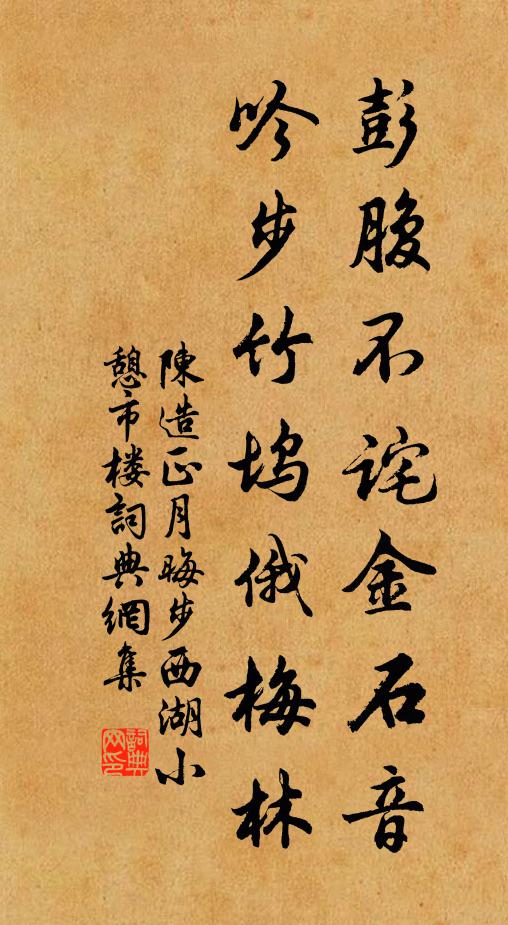 彭腹不詫金石音
吟步竹塢俄梅林
陳造正月晦步西湖小
憩市楼詞典網集
詞典
网印